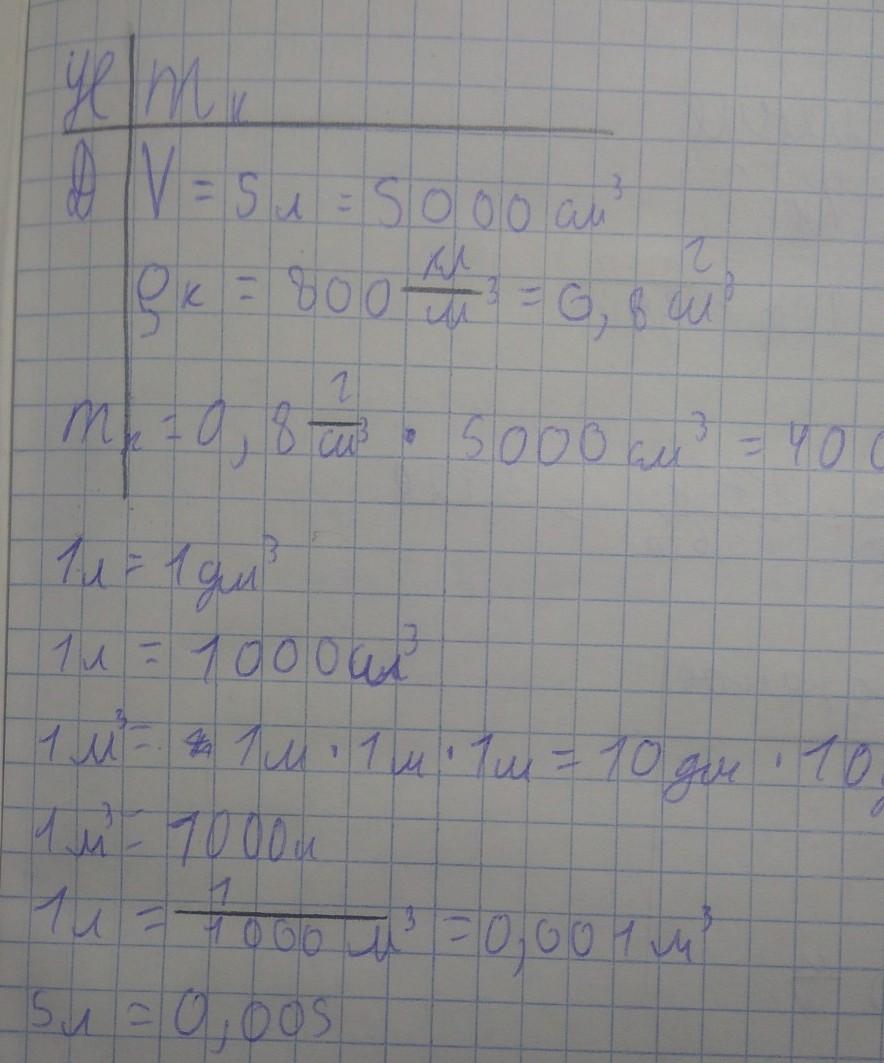 Н m к
Д V = 5 л = 5000 см³
ρк = 800 кг/м³ = 0,8 г/см³
mк = 0,8 г/см³ · 5000 см³ = 400
1л = 1дм³
1л = 1000см³
1м³ = 1м · 1м · 1м = 10 дм · 10
1м³ = 1000л
1л = 1/1000 м³ = 0,001 м³
5л = 0,005